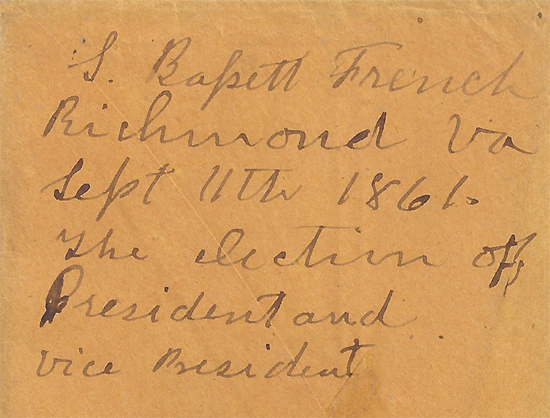 S. Bassett French
Richmond Va
Sept 11th 1861.
The election off
President and
Vice President